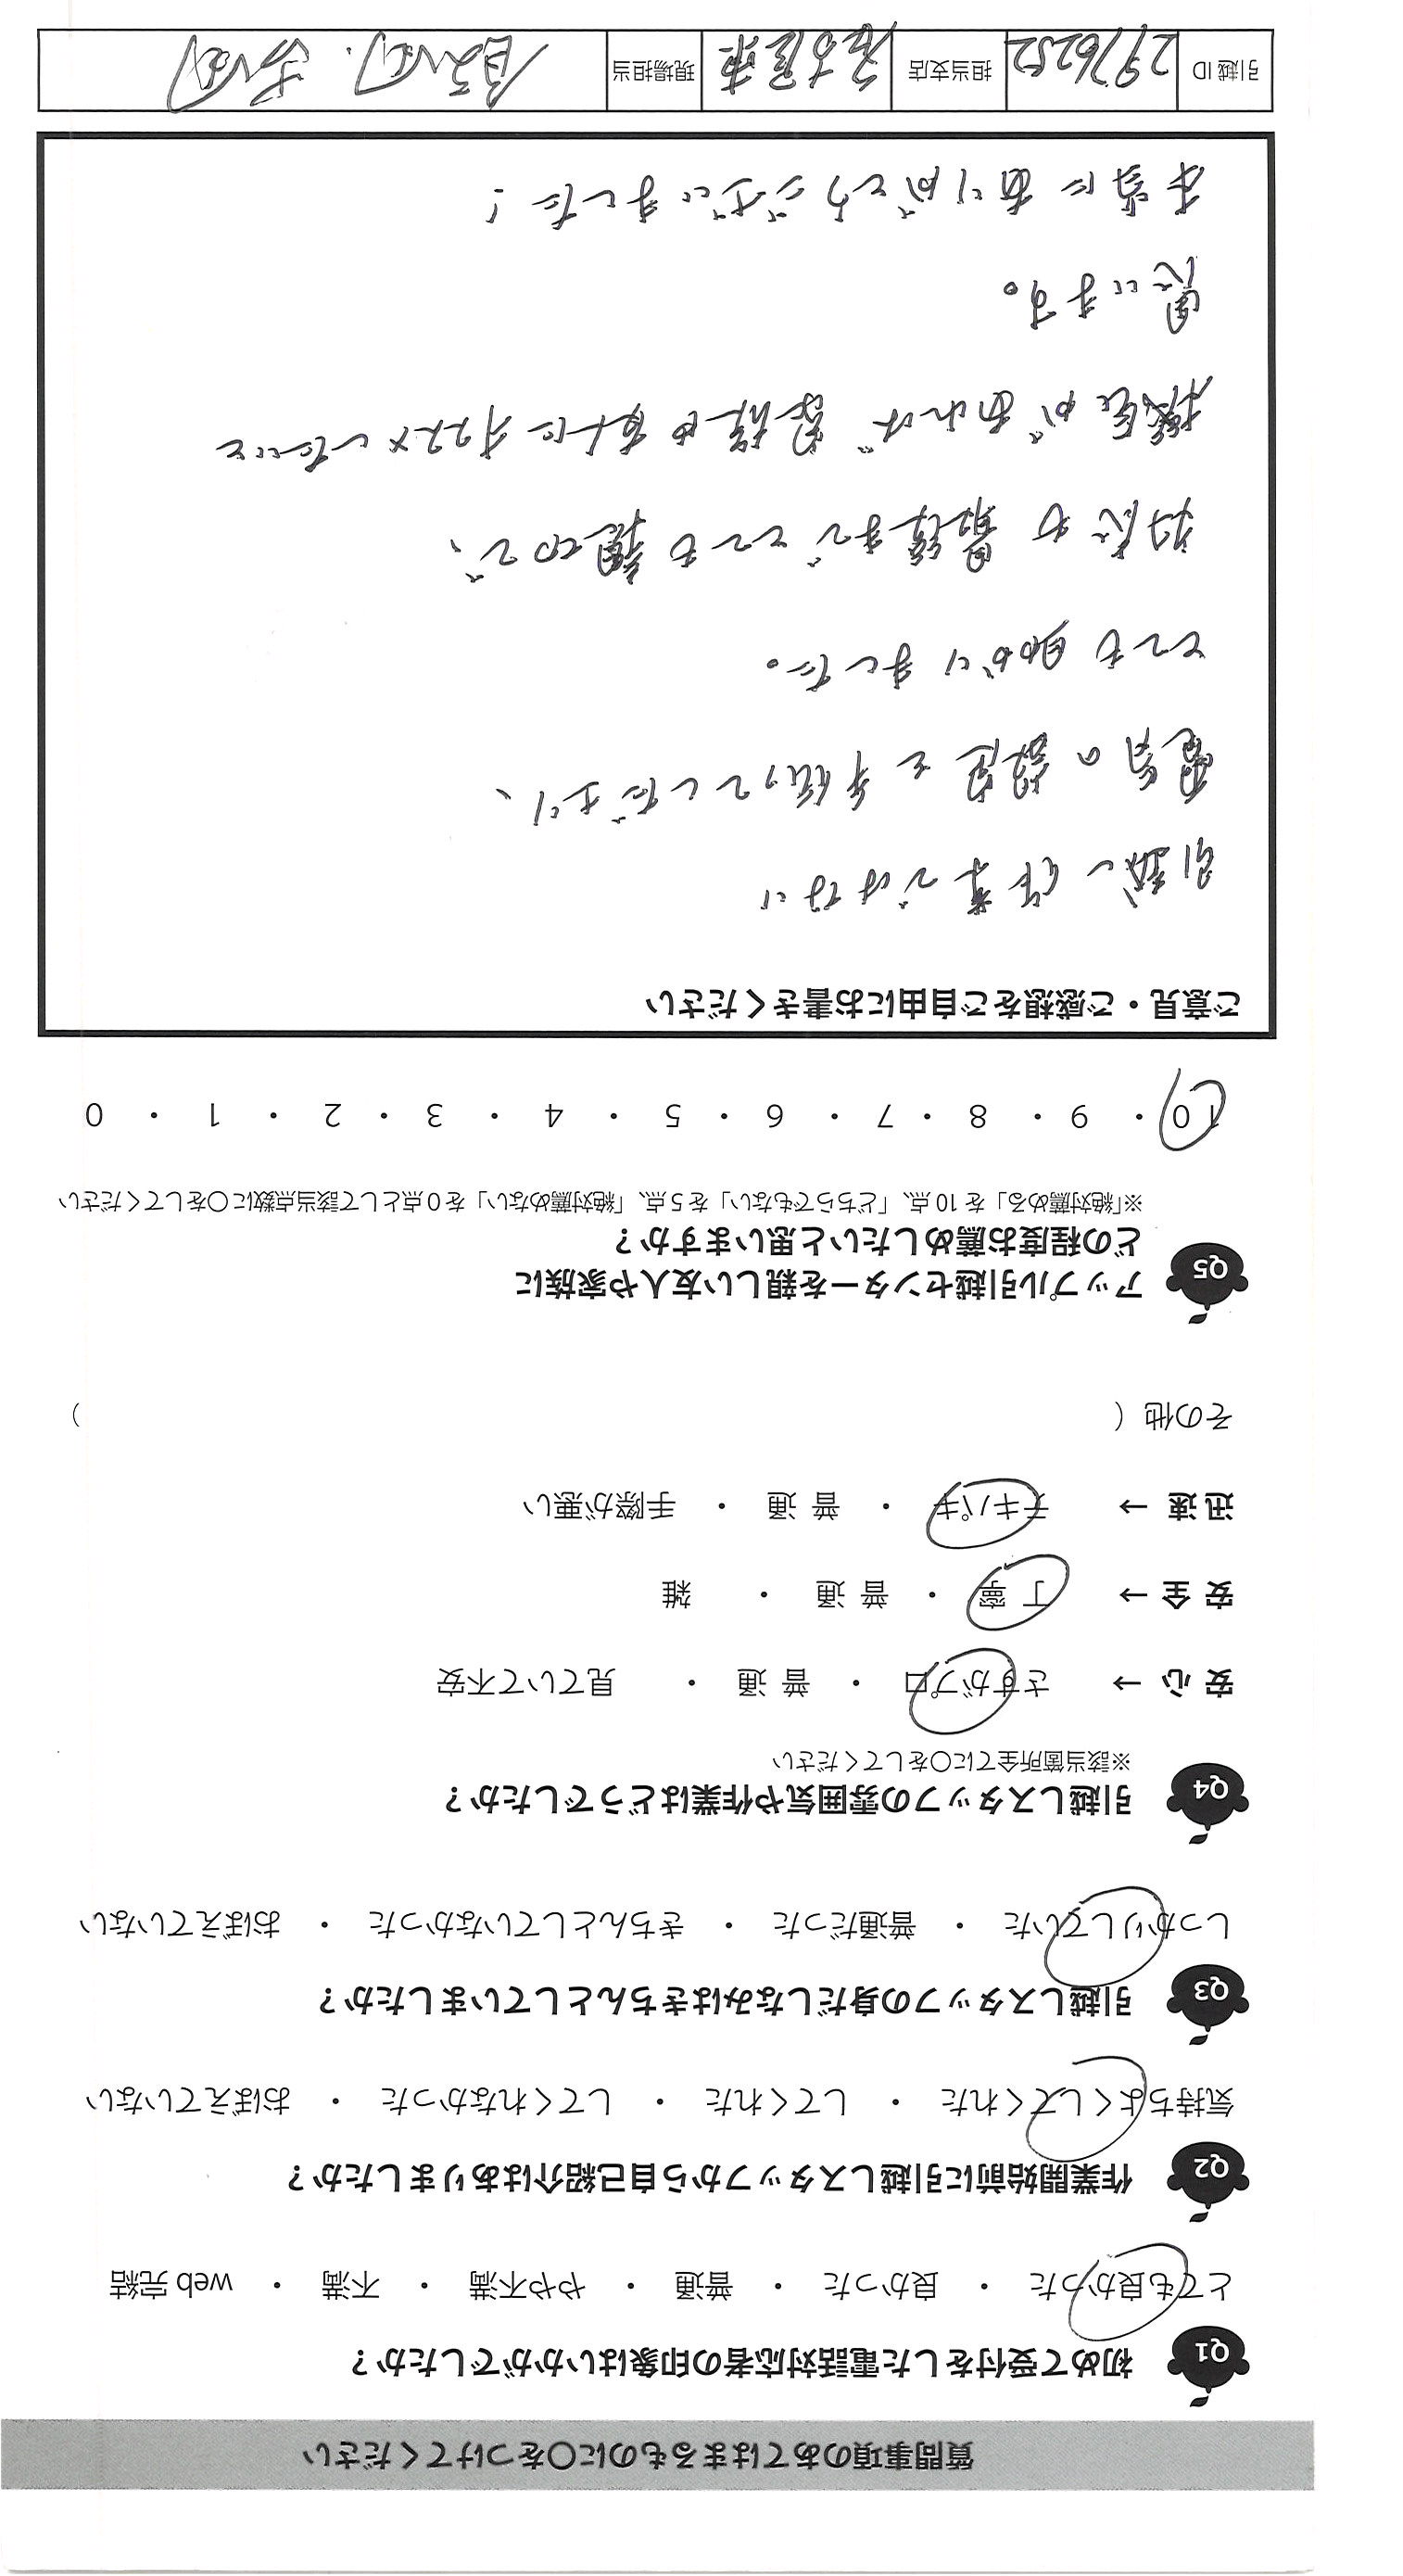 質問事項のあてはまるものに〇をつけてください
Q1 初めて受付をした電話対応者の印象はいかがでしたか？
とても良かった ・ 良かった ・ 普通 ・ やや不満 ・ 不満 ・ web 完結
Q2 作業開始前に引越しスタッフから自己紹介はありましたか？
気持ちよくしてくれた ・ してくれた ・ してくれなかった ・ おぼえていない
Q3 引越しスタッフの身だしなみはきちんとしていましたか？
しっかりしていた ・ 普通だった ・ きちんとしていなかった ・ おぼえていない
Q4 引越しスタッフの雰囲気や作業はどうでしたか？
※該当箇所全てに〇をしてください
安 心 → さすがプロ ・ 普 通 ・ 見ていて不安
安 全 → 丁 寧 ・ 普 通 ・ 雑
迅 速 → テキパキ ・ 普 通 ・ 手際が悪い
その他（ ）
Q5 アップル引越センターを親しい友人や家族に
どの程度お薦めしたいと思いますか？
※「絶対薦める」を 10 点、「どちらでもない」を 5 点、「絶対薦めない」を 0 点として該当点数に〇をしてください
10 ・ 9 ・ 8 ・ 7 ・ 6 ・ 5 ・ 4 ・ 3 ・ 2 ・ 1 ・ 0
ご意見・ご感想をご自由にお書きください
引越し作業ではない
電気の設定を手伝ってくださり、
とても助かりました。
対応も最後までとても親切で、
機会があれば家族や友人にオススメしたいと
思います。
本当にありがとうございました！
引越 ID 2976252 担当支店 名古屋東 現場担当